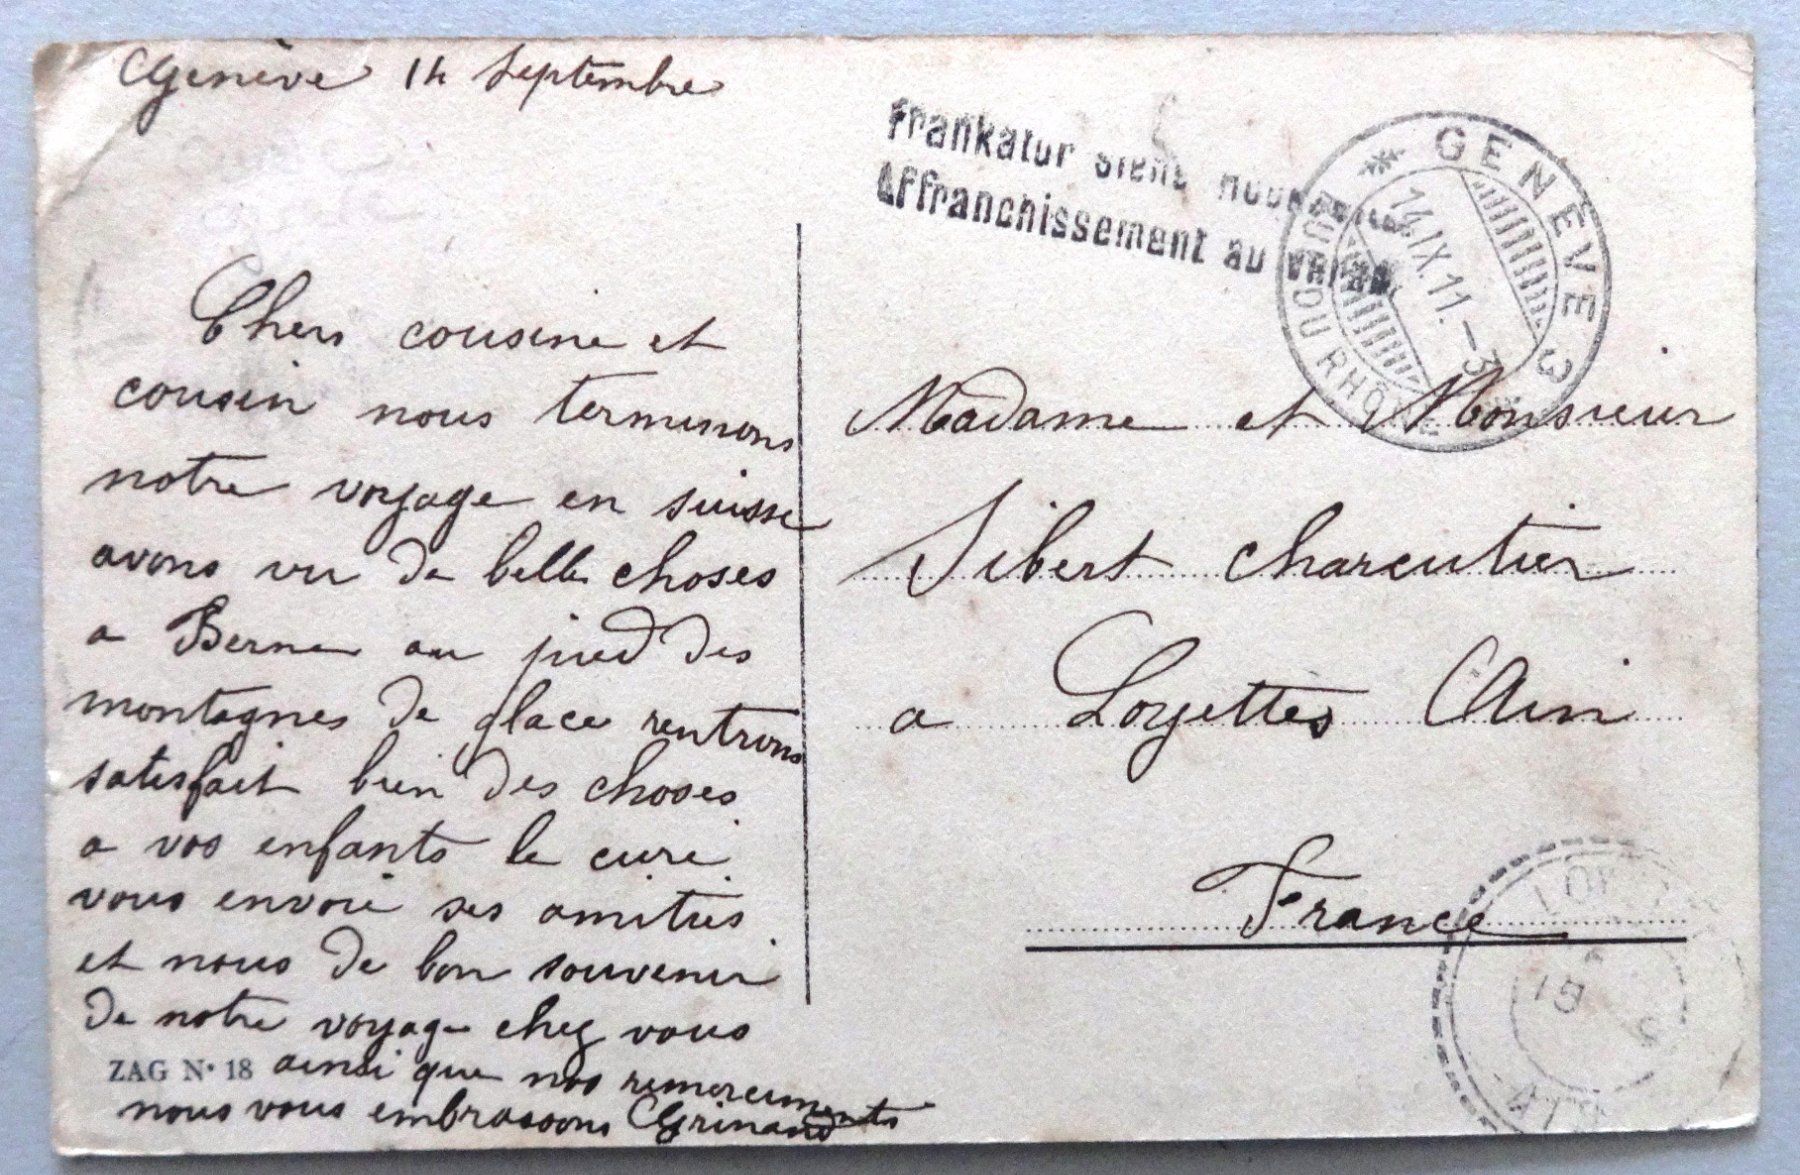 Genève 14 Septembre
Chers cousine et
cousin nous terminons
notre voyage en suisse
avons vu de belle choses
a Berne au pied des
montagnes de glace rentrons
satisfait bien des choses
a vos enfants le curé
vous envoie ses amitiés
et nous de bon souvenir
de notre voyage chez vous
ainsi que nos remerciements
nous vous embrassons Grinand
ZAG N° 18
Frankatur
Affranchissement au verso.
GENÈVE 3
RUE DU RHÔNE
14.IX.11.-3
Madame et Monsieur
Sibert charcutier
a Loyettes Ain
France
15
AIN